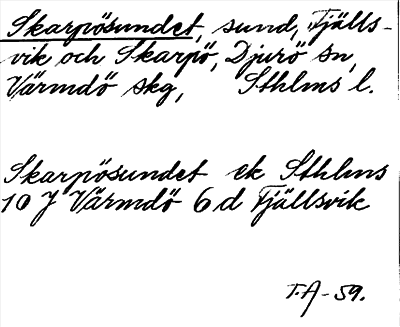 Skarpösundet, sund, Fjälls-
vik och Skarpö, Djurö sn,
Värmdö skg, Sthlms l.
Skarpösundet ek Sthlms
10 J Värmdö 6 d Fjällsvik
T.A-59.